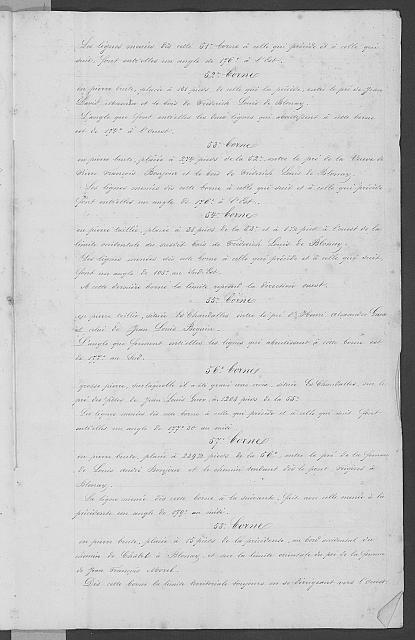 Les lignes menées dès cette 51e borne à celle qui précède et à celle qui
suit, font entr'elles un angle de 176° à l'Est.
52e Borne
en pierre brute, placée à pieds de celle qui la précède, entre le pré de Jean
David et le bois de Frédérich Louis de Blonay.
L'angle que font entr'elles les deux lignes qui aboutissent à cette borne
est de 174° à l'Ouest.
53e Borne
en pierre brute, placée à 274 pieds de la 52e, entre le pré de la Veuve de
François Bonjour et le bois de Frédérich Louis de Blonay.
Les lignes menées dès cette borne à celle qui suit et à celle qui précède
font entr'elles un angle de 176° à l'Est.
54e Borne
en pierre taillée, placée à pieds de la 53e et à pieds à l'ouest de la
limite orientale du susdit bois de Frédérich Louis de Blonay.
Les lignes menées dès cette borne à celle qui précède et à celle qui suit,
font un angle de 105° au Sud-Est.
A cette dernière borne la limite reprend la direction ouest.
55e Borne
en pierre taillée, située Es Chandalles entre le pré d'Henri Alexandre
et celui de Jean Louis
L'angle que forment entr'elles les lignes qui aboutissent à cette borne est
de 177° au Sud.
56e Borne
grosse pierre, sur laquelle il a été gravé une croix, située Es Chandalles, sur le
pré des filles de Jean Louis à 1204 pieds de la 55e
Les lignes menées dès cette borne à celle qui précède et à celle qui suit font
entr'elles un angle de 177° 30' au midi
57e Borne
en pierre brute, placée à pieds de la 56e, entre le pré de la femme
de Louis André Bonjour et le chemin tendant dès le pont à
Blonay.
La ligne menée dès cette borne à la suivante, fait avec celle menée à la
précédente un angle de 179° au midi.
58e Borne
en pierre brute, placée à 15 pieds de la précédente, au bord occidental du
chemin de Châtel à Blonay, et sur la limite orientale du pré de la femme
de Jean François Morel.
Dès cette borne la limite territoriale toujours en se dirigeant vers l'Ouest